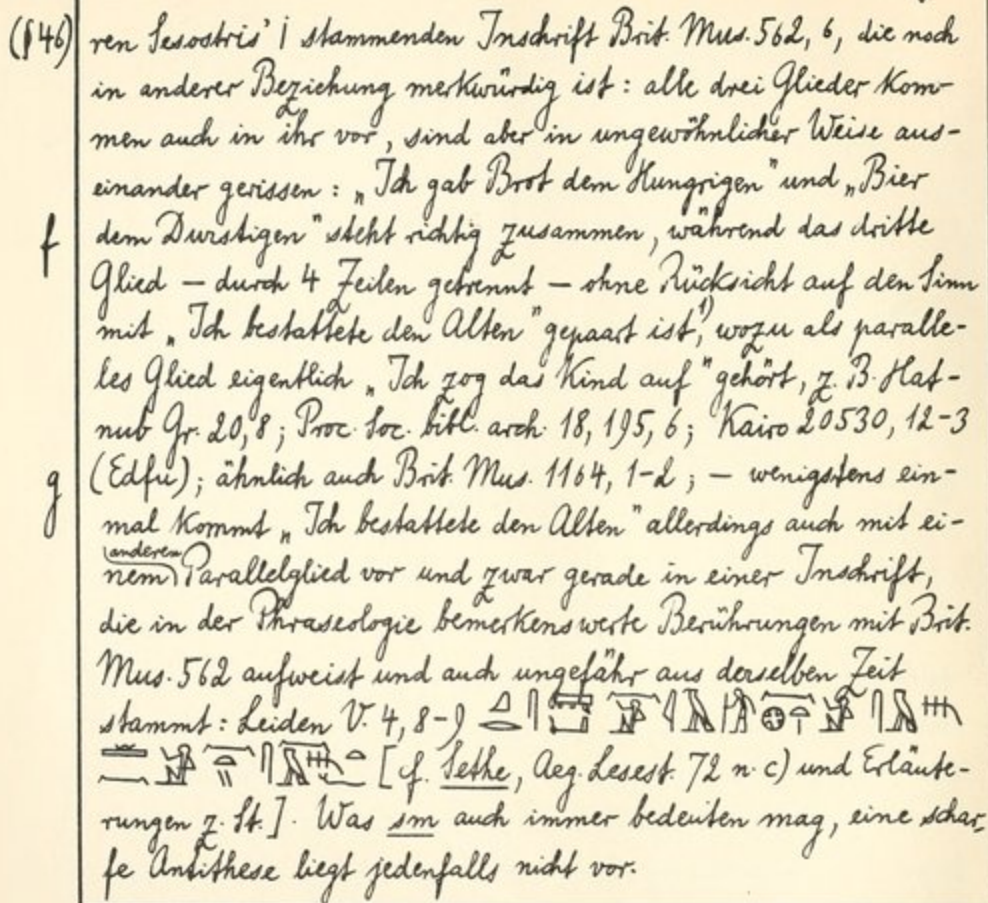 (§46) ren Sesostris' I stammenden Inschrift Brit. Mus. 562, 6, die noch
in anderer Beziehung merkwürdig ist: alle drei Glieder kom-
men auch in ihr vor, sind aber in ungewöhnlicher Weise aus-
einander gerissen: „Ich gab Brot dem Hungrigen" und „Bier
f dem Durstigen" steht richtig zusammen, während das dritte
Glied — durch 4 Zeilen getrennt — ohne Rücksicht auf den Sinn
mit „Ich bestattete den Alten" gepaart ist,¹⁾ wozu als paralle-
les Glied eigentlich „Ich zog das Kind auf" gehört, z. B. Hat-
nub Gr. 20, 8; Proc. Soc. bibl. arch. 18, 195, 6; Kairo 20530, 12-3
g (Edfu); ähnlich auch Brit. Mus. 1164, 1-2; — wenigstens ein-
mal kommt „Ich bestattete den Alten" allerdings auch mit ei-
nem anderen Parallelglied vor und zwar gerade in einer Inschrift,
die in der Phraseologie bemerkenswerte Berührungen mit Brit.
Mus. 562 aufweist und auch ungefähr aus derselben Zeit
stammt: Leiden V. 4, 8-9
[cf. Sethe, Aeg. Lesest. 72 n. c) und Erläute-
rungen z. St.]. Was sm auch immer bedeuten mag, eine schar-
fe Antithese liegt jedenfalls nicht vor.